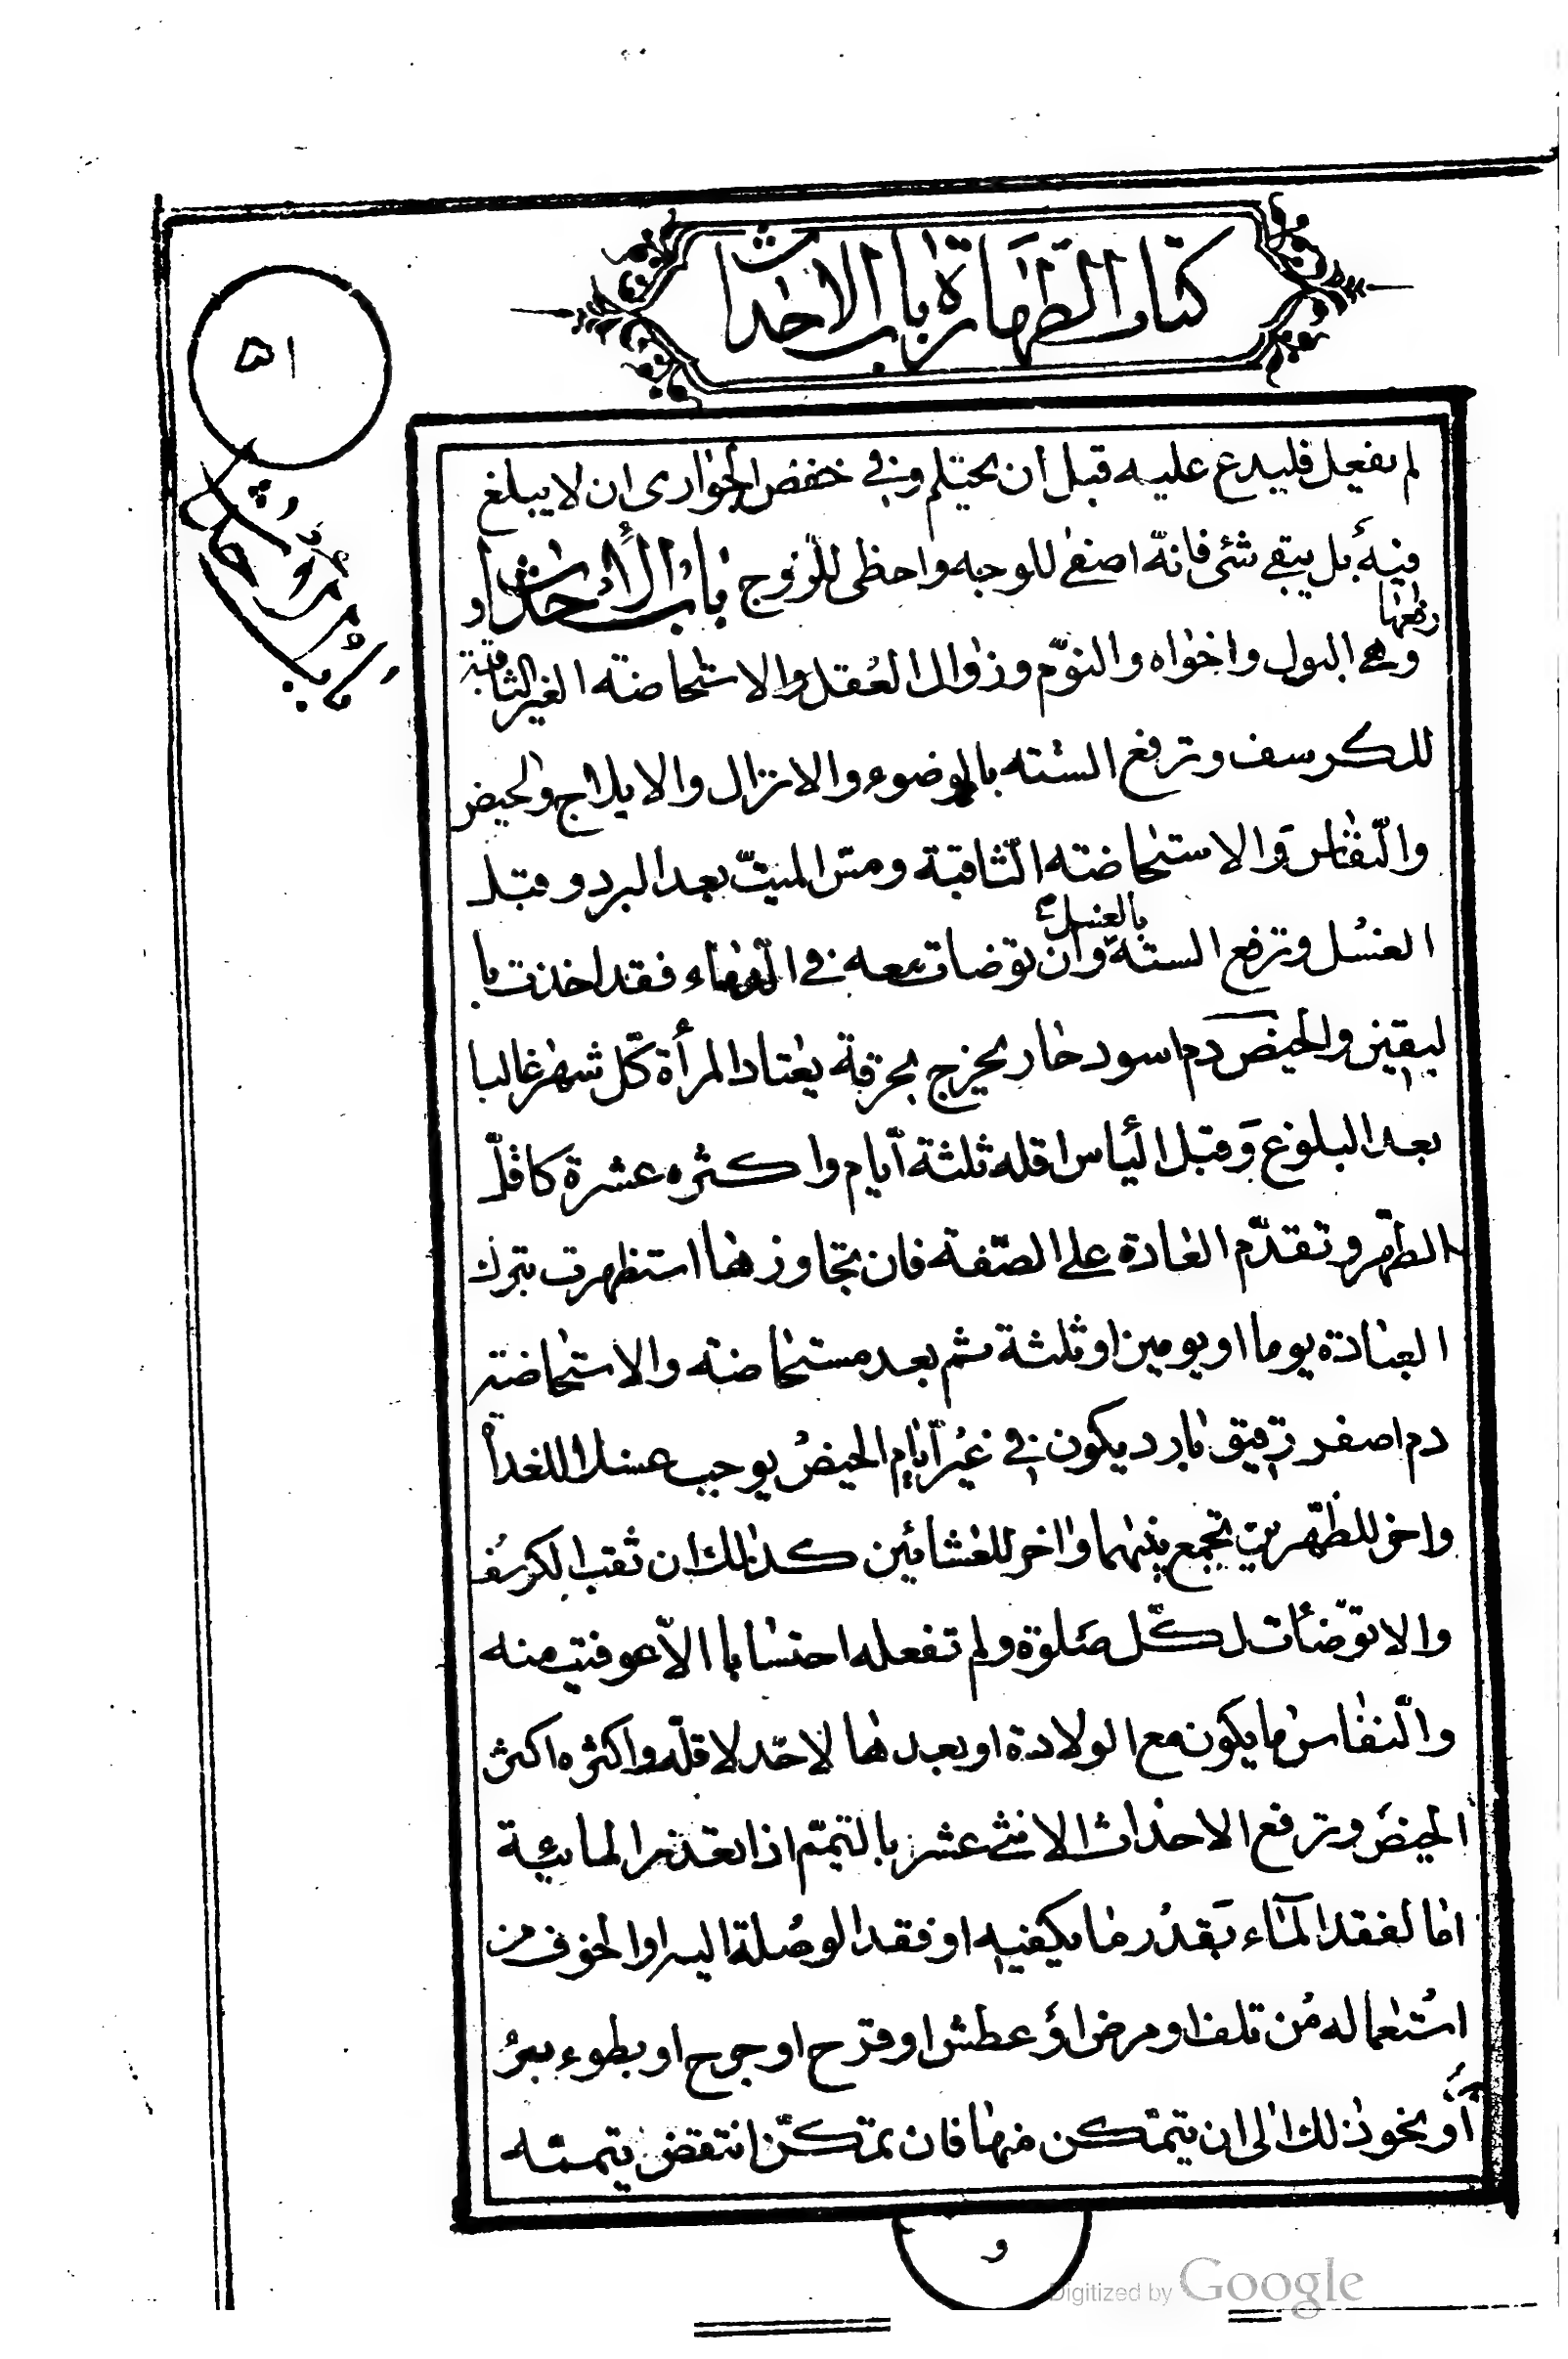 كتاب الطهارة باب الاحداث
٥١
باب الاحداث و
لم يفعل فليدع عليه قبل أن يحتلم وفي خفض الجوارى ان لا يبلغ
فيه بل يبقى شئ فانّه اصفى للوجه واحظى للزوج باب الأحداث و
رفعها
وهى البول واخواه والنوم وزوال العقل والاستحاضة الغير الثاقبة
للكرسف وترفع الستة بالوضوء والانزال والايلاج والحيض
والنّفاس والاستحاضة الثّاقبة ومسّ الميّت بعد البرد وقبل
بالغسل
الغسل وترفع الستة وان توضات معه فى فقد اخذت با
ليقين والحيض دم اسود حار يخرج بحرقة يعتاد المرأة كل شهر غالبا
بعد البلوغ وقبل اليأس اقله ثلثة أيام واكثره عشرة كاقلّ
الطهر وتقدّم العادة على الصّفة فان تجاوزها استظهرت بترك
العبادة يوما او يومين او ثلثة ثم بعد مستحاضة والاستحاضة
دم اصفر رقيق بارد يكون في غير أيام الحيض يوجب غسلا للغداة
واخر للظّهرين تجمع بينهما واخر للعشائين كذلك ان ثقب الكرسف
والا توضّأت لكلّ صلوة ولم تفعله احتسابا الّا عوفيت منه
والنّفاس ما يكون مع الولادة او بعدها لا حدّ لاقلّه واكثره اكثر
الحيض وترفع الاحداث الاثنى عشر بالتيمّم اذا تعذر المائية
امّا لفقد المآء بقدر ما يكفيه او فقد الوصلة اليه او الخوف من
استعماله من تلف او مرض او عطش او قرح او جرح او بطوء برء
أو نحو ذلك الى ان يتمكن منها فان تمكّن انتقض تيممه
و
Digitized by Google